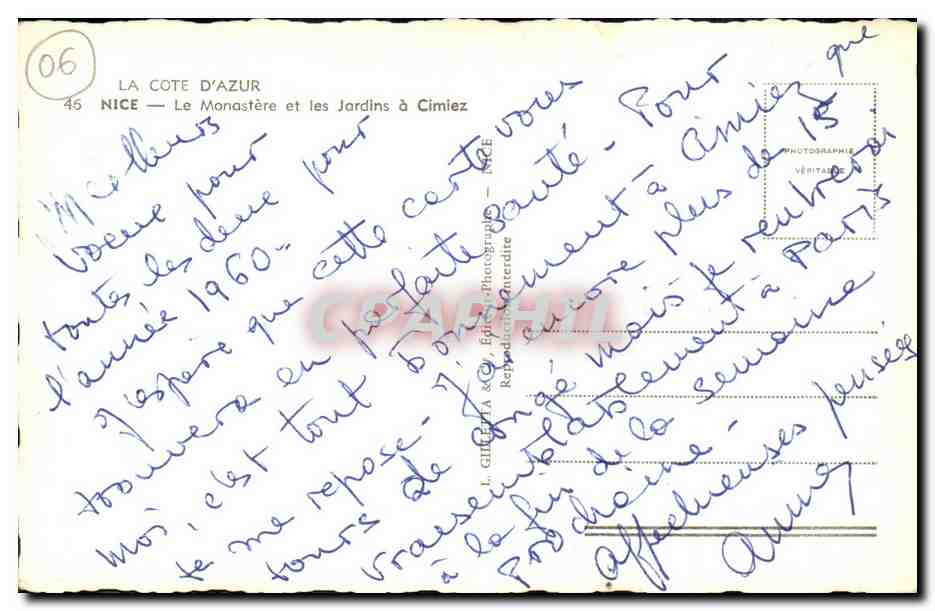 06
LA COTE D'AZUR
46 NICE — Le Monastère et les Jardins à Cimiez
PHOTOGRAPHIE
VÉRITABLE
L. GILLETTA & Cie, Éditeur-Photographe — NICE
Reproduction interdite
CPAPHIL
Meilleurs
voeux pour
toutes les deux pour
l'année 1960 -
J'espère que cette carte vous
trouvera en parfaite santé - Pour
moi, c'est tout bonnement à Cimiez que
je me repose - J'ai encore plus de 15
jours de congé mais je rentrerai
vraisemblablement à Paris
à la fin de la semaine
prochaine -
affectueuses pensées